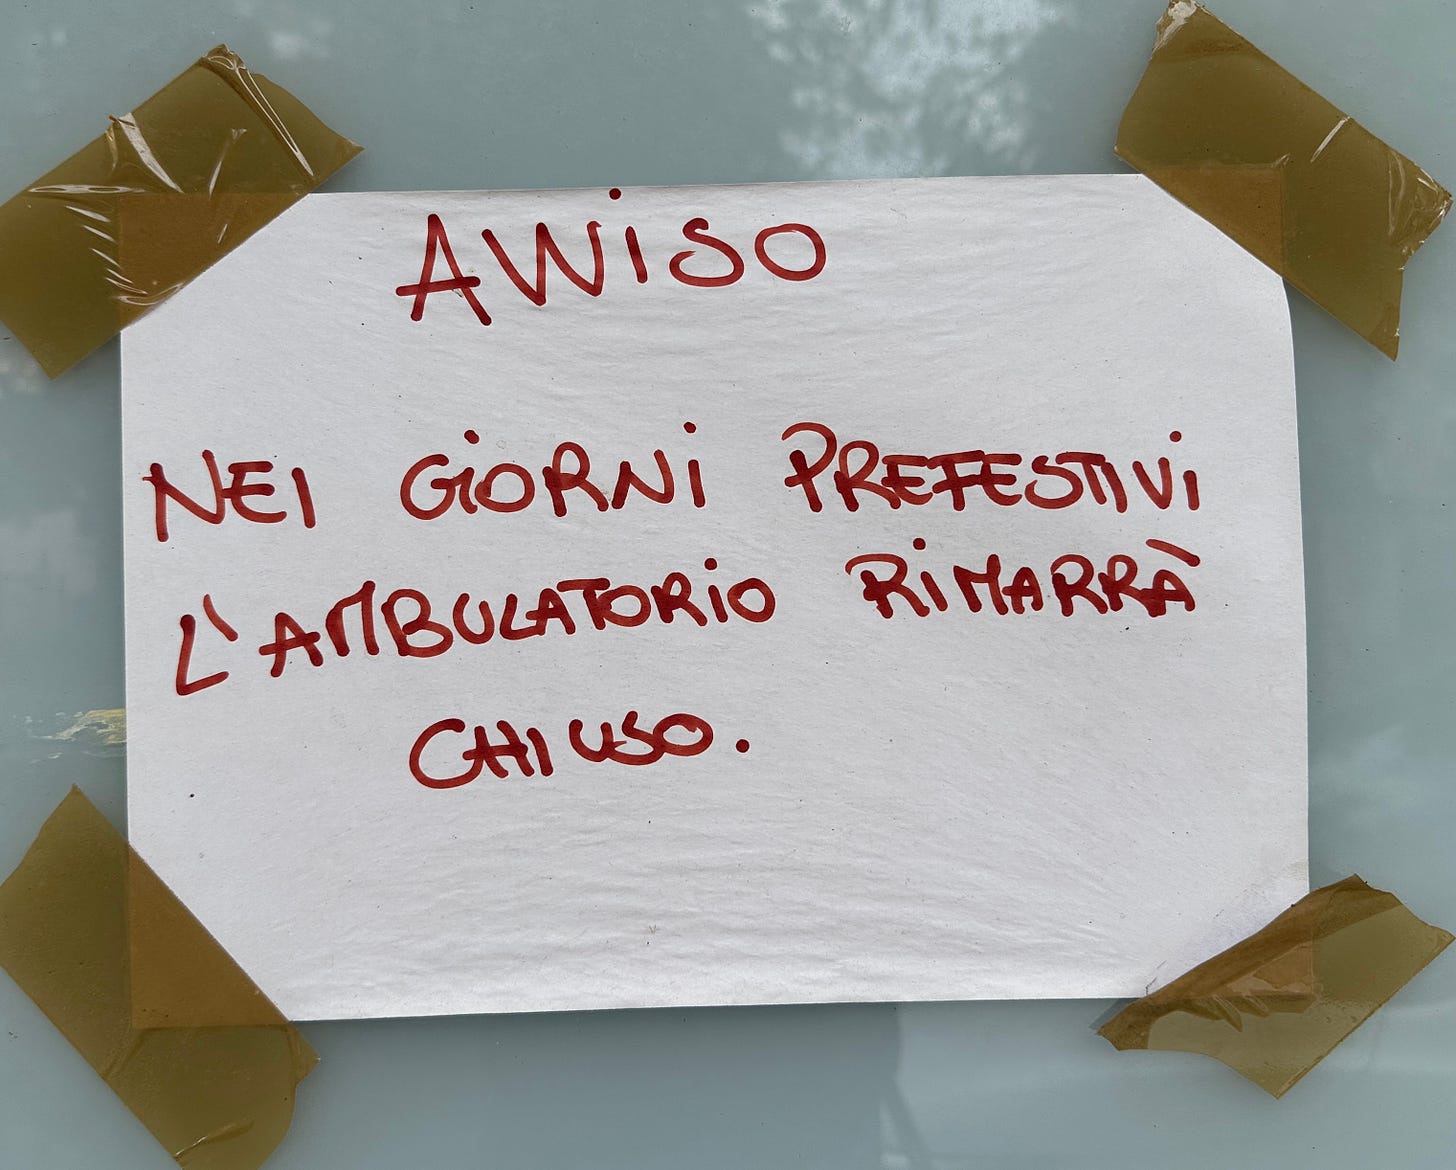 AVVISO
NEI GIORNI PREFESTIVI
L'AMBULATORIO RIMARRÀ
CHIUSO.